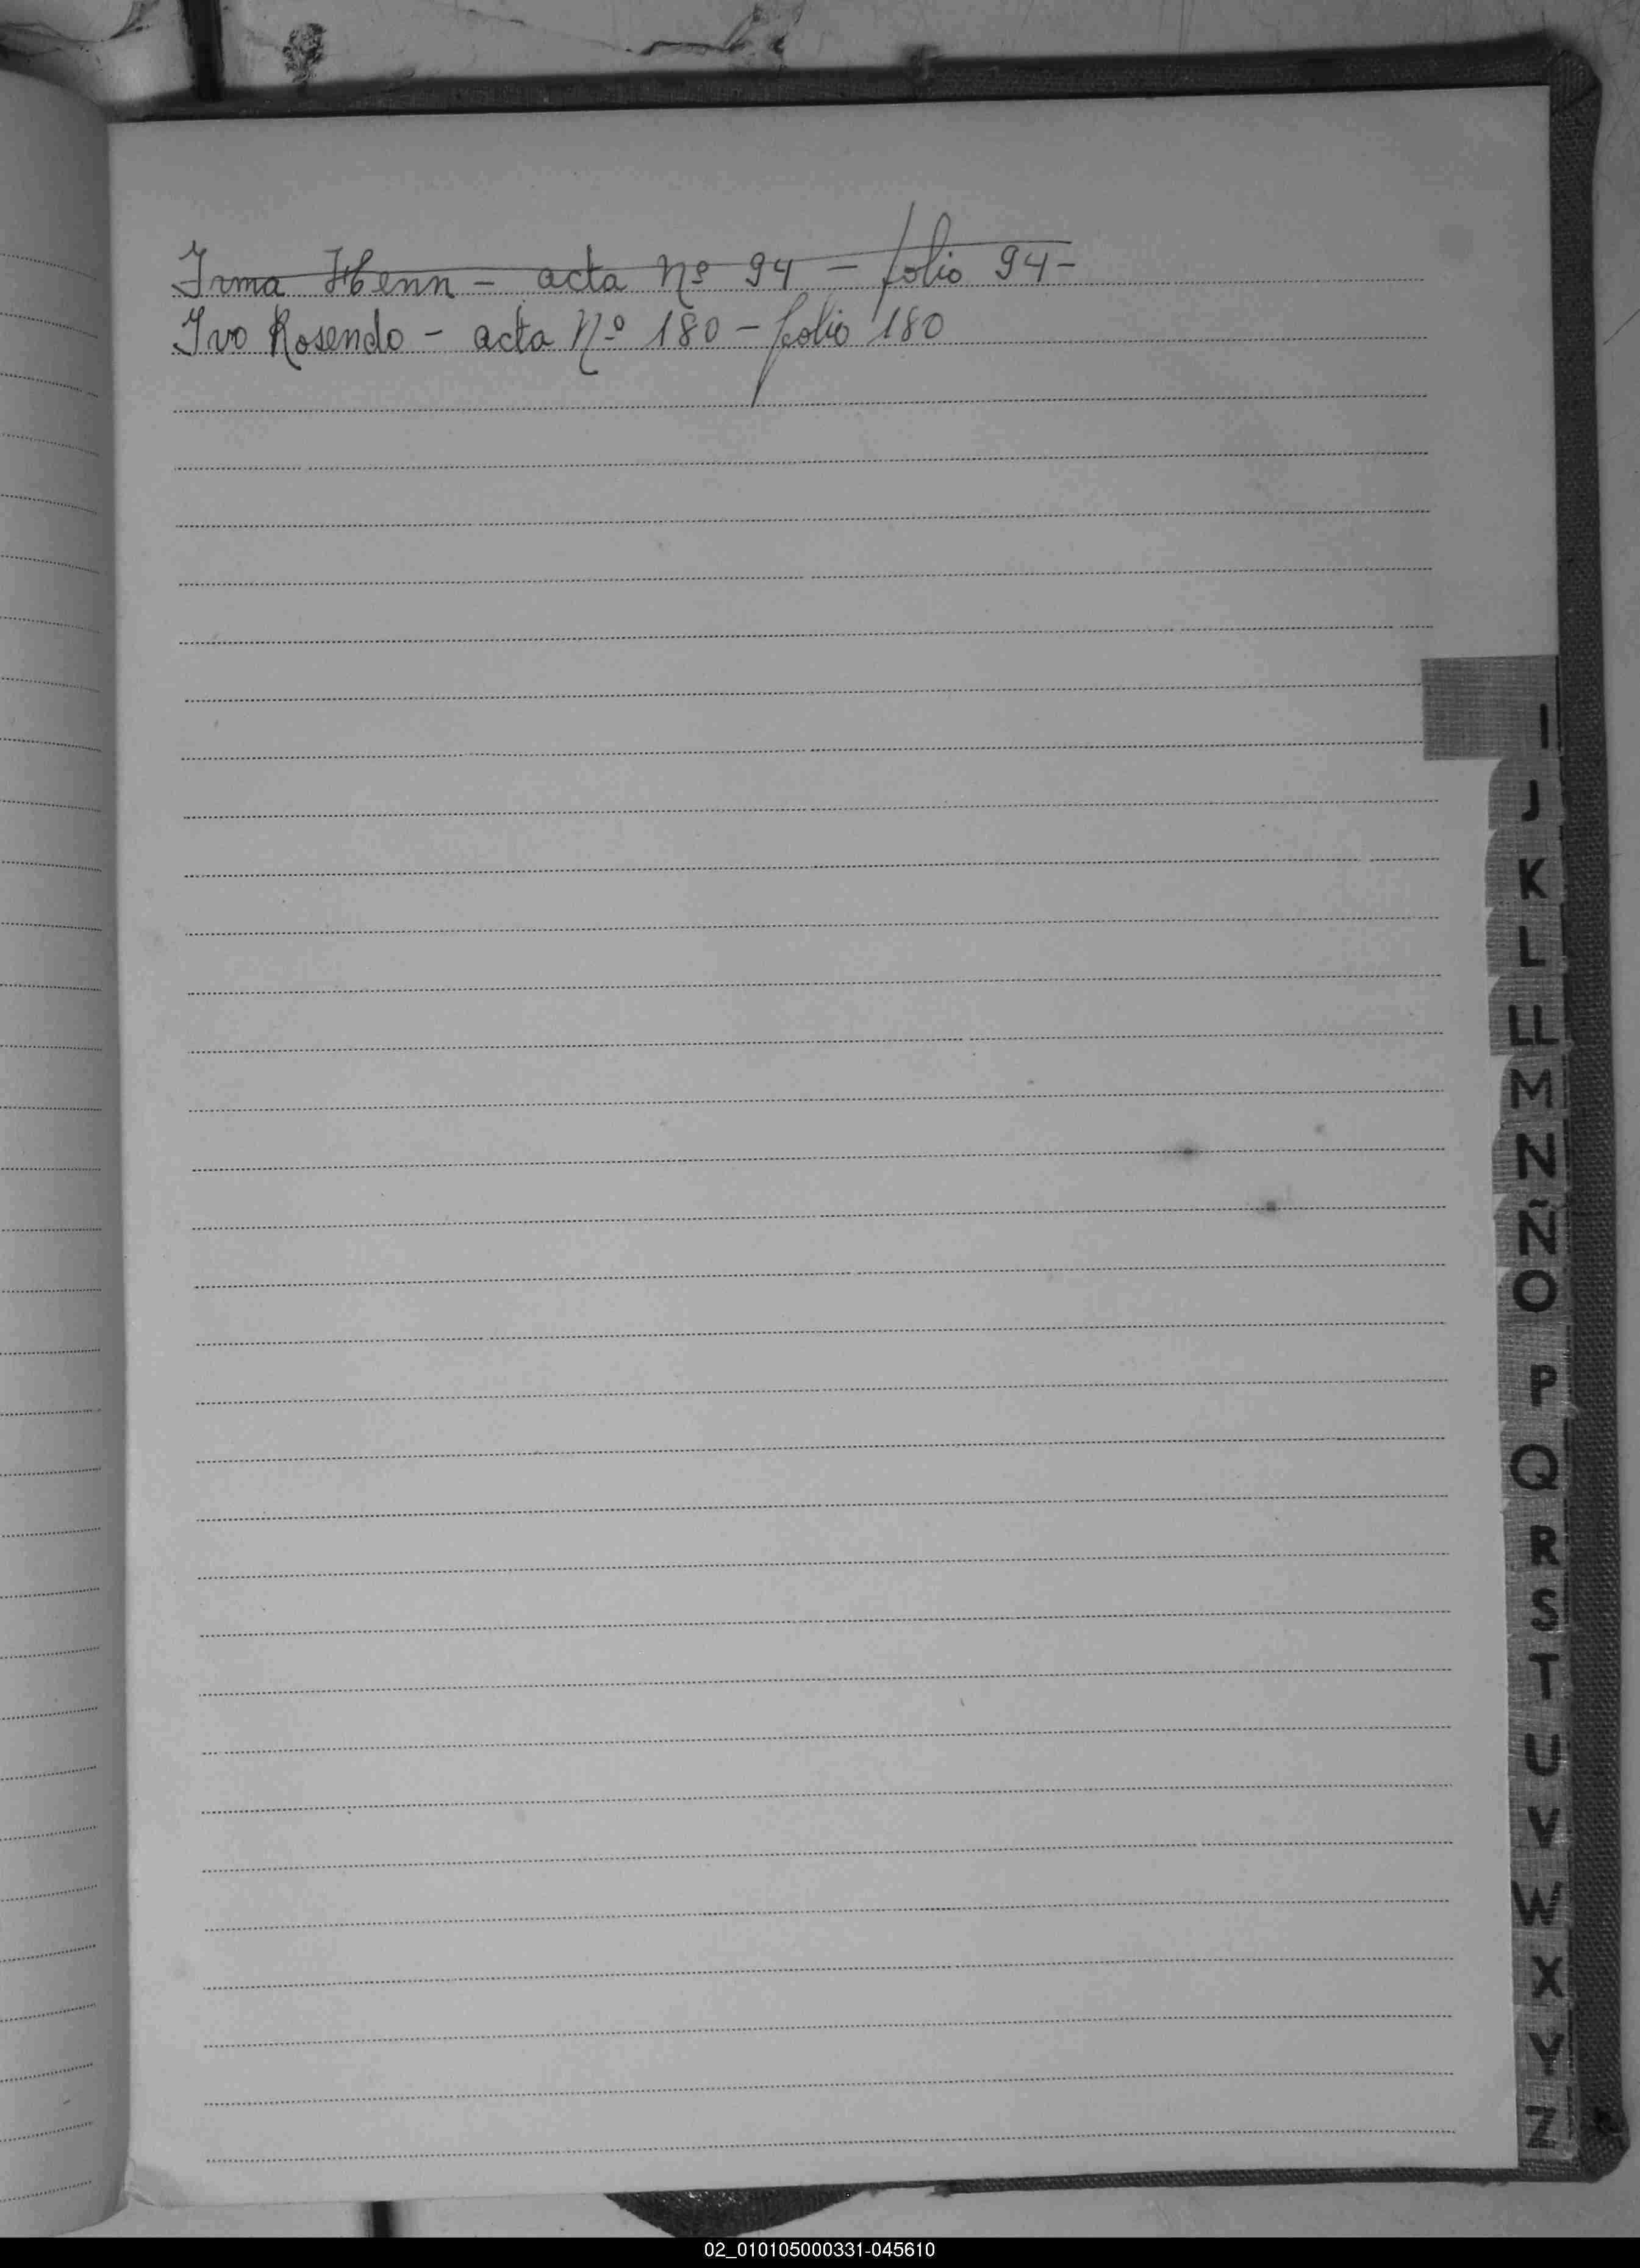 Irma Henn - acta Nº 94 - folio 94-
Ivo Rosendo - acta Nº 180 - folio 180
I
J
K
L
LL
M
N
Ñ
O
P
Q
R
S
T
U
V
W
X
Y
Z
02_010105000331-045610